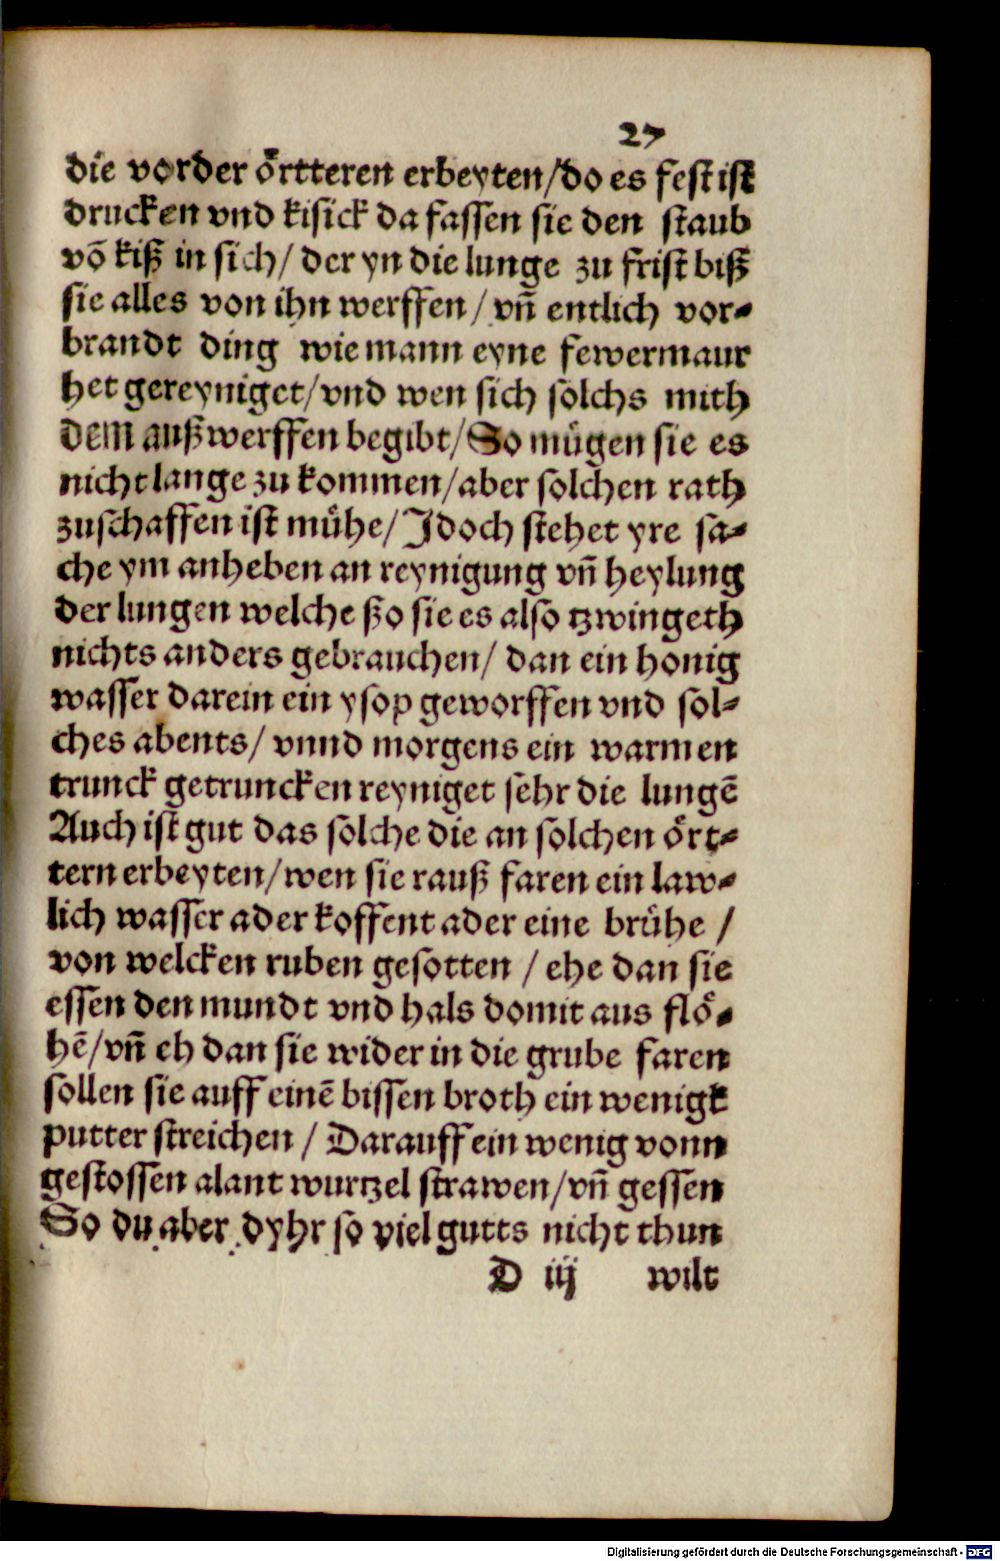 27
die vorder oͤrtteren erbeyten/do es fest ist
drucken vnd kisick da fassen sie den staub
võ kiß in sich/ der yn die lunge zu frist biß
sie alles von ihn werffen/ vñ entlich vor⸗
brandt ding wie mann eyne fewermaur
het gereyniget/vnd wen sich solchs mith
dem außwerffen begibt/So muͤgen sie es
nicht lange zu kommen/aber solchen rath
zuschaffen ist muͤhe/Jdoch stehet yre sa⸗
che ym anheben an reynigung vñ heylung
der lungen welche ßo sie es also tzwingeth
nichts anders gebrauchen/ dan ein honig
wasser darein ein ysop geworffen vnd sol⸗
ches abents/ vnnd morgens ein warmen
trunck getruncken reyniget sehr die lungẽ
Auch ist gut das solche die an solchen oͤrt⸗
tern erbeyten/wen sie rauß faren ein law⸗
lich wasser ader koffent ader eine bruͤhe /
von welcken ruben gesotten / ehe dan sie
essen den mundt vnd hals domit aus floͤ⸗
hẽ/vñ eh dan sie wider in die grube faren
sollen sie auff einẽ bissen broth ein wenigk
putter streichen / Darauff ein wenig vonn
gestossen alant wurtzel strawen/vñ gessen
So du aber dyhr so viel gutts nicht thun
D iij wilt
Digitalisierung gefördert durch die Deutsche Forschungsgemeinschaft - DFG